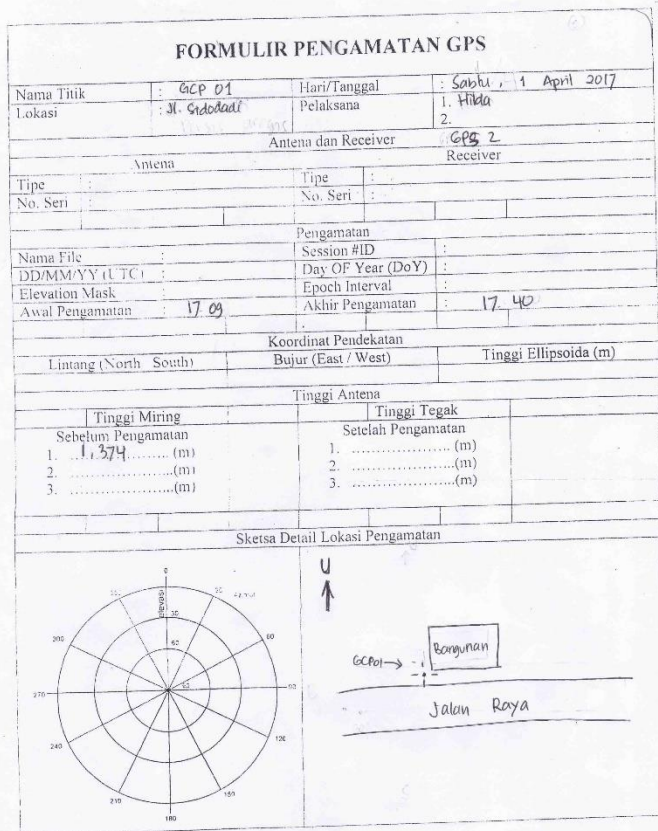 FORMULIR PENGAMATAN GPS
Nama Titik : GCP 01 Hari/Tanggal : Sabtu, 1 April 2017
Lokasi : Jl. Sidodadi Pelaksana 1. Hilda
2.
Antena dan Receiver GPS 2
Antena Receiver
Tipe : Tipe :
No. Seri : No. Seri :
Pengamatan
Nama File : Session #ID :
DD/MM/YY (UTC) : Day OF Year (DoY) :
Elevation Mask : Epoch Interval :
Awal Pengamatan : 17.09 Akhir Pengamatan : 17.40
Koordinat Pendekatan
Lintang (North South) Bujur (East / West) Tinggi Ellipsoida (m)
Tinggi Antena
Tinggi Miring Tinggi Tegak
Sebelum Pengamatan Setelah Pengamatan
1. 1,374 (m) 1. .................... (m)
2. ....................(m) 2. ....................(m)
3. ....................(m) 3. ....................(m)
Sketsa Detail Lokasi Pengamatan
U
0
elevasi
30
60
60
270
90
240
120
210
150
180
GCP01→
Bangunan
Jalan Raya